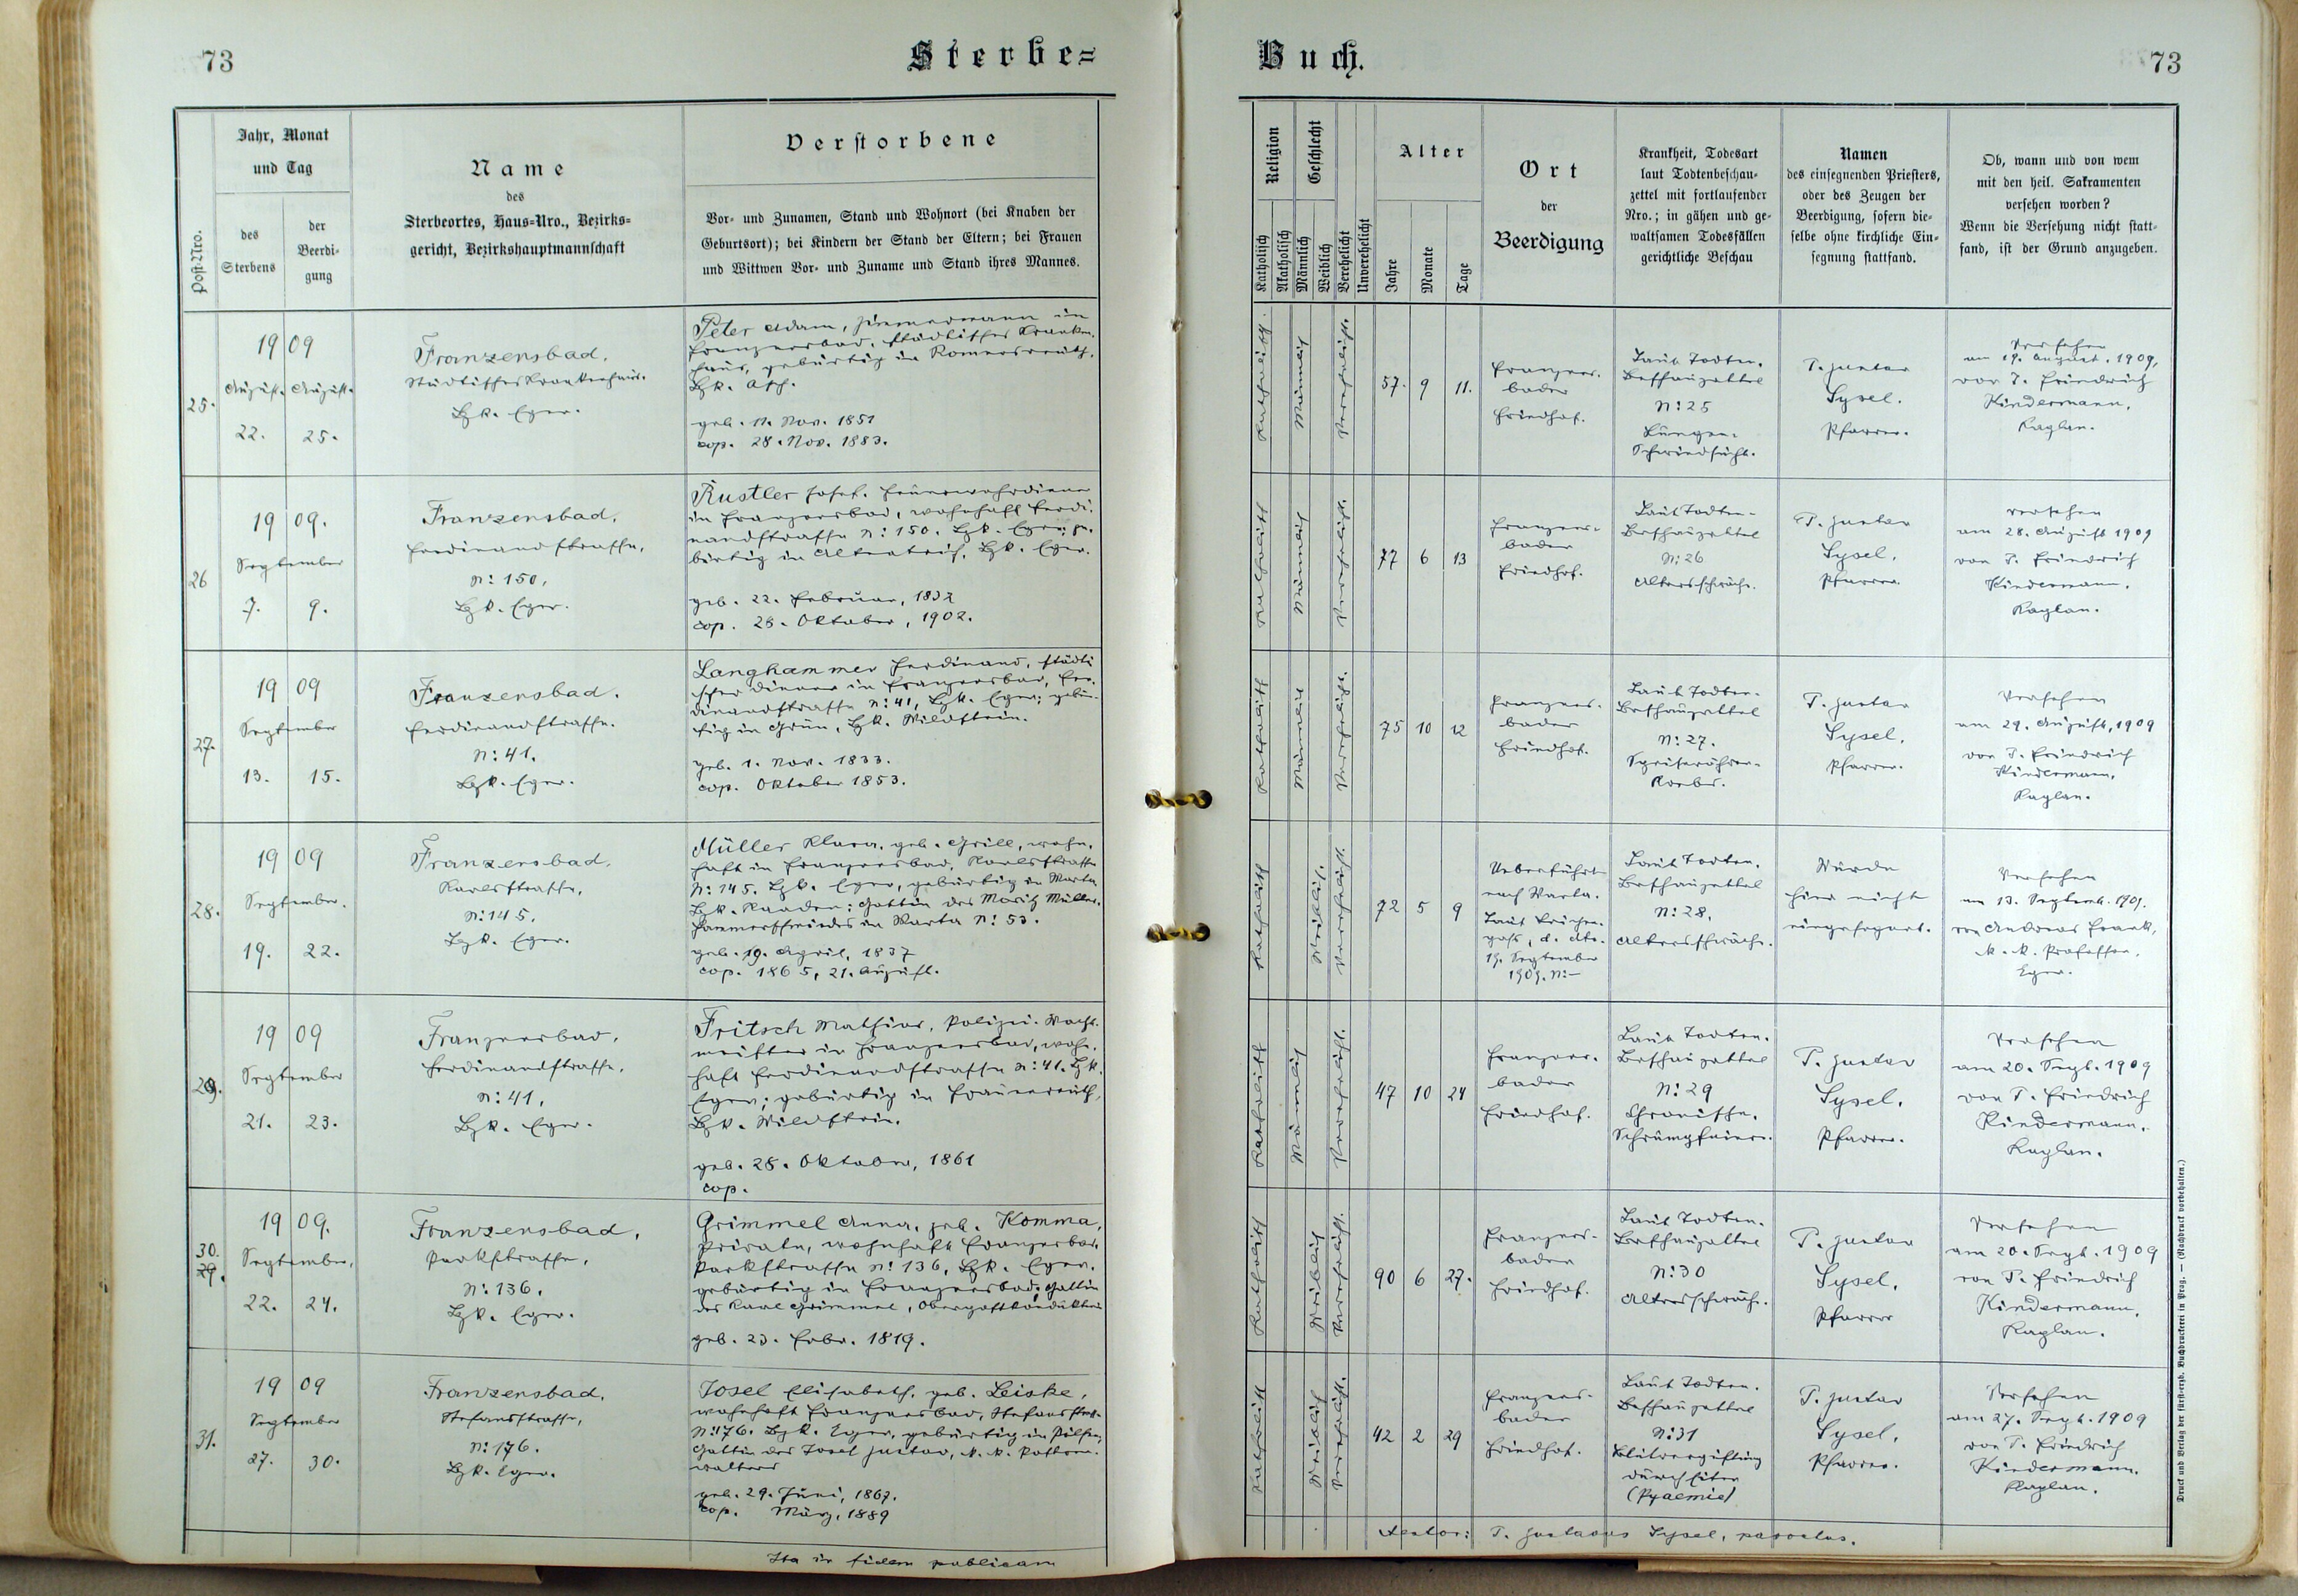 73
Sterbe=
Post-Nro.
Jahr, Monat
und Tag
des
Sterbens
der
Beerdi-
gung
Name
des
Sterbeortes, Haus-Nro., Bezirks-
gericht, Bezirkshauptmannschaft
Verstorbene
Vor- und Zunamen, Stand und Wohnort (bei Knaben der
Geburtsort); bei Kindern der Stand der Eltern; bei Frauen
und Wittwen Vor- und Zuname und Stand ihres Mannes.
25.
1909
August. August.
22. 25.
Franzensbad.
Städtisches Krankenhaus.
Bzk. Eger.
Peter Adam, Zimmermann in
Franzensbad, städtisches Kranken-
haus, gebürtig in Romersreuth,
Bzk. Asch.
geb. 11. Nov. 1851
cop. 28. Nov. 1883.
26
1909.
September
7. 9.
Franzensbad,
Ferdinandstrasse,
N: 150,
Bzk. Eger.
Rustler Josef, Feuerwehrdiener
in Franzensbad, wohnhaft Ferdi-
nandstrasse N: 150. Bzk. Eger; ge-
bürtig in Bzk. Eger.
geb. 22. Februar, 1832
cop. 28. Oktober, 1902.
27.
1909
September
13. 15.
Franzensbad.
Ferdinandstrasse.
N: 41.
Bzk. Eger.
Langhammer Ferdinand, städti
scher Diener in Franzensbad, Fer-
dinandstrasse N: 41, Bzk. Eger; gebür-
tig in Grün, Bzk. Wildstein.
geb. 1. Nov. 1833.
cop. Oktober 1853.
28.
1909
September.
19. 22.
Franzensbad,
Karlsstrasse,
N: 145.
Bzk. Eger.
Müller Klara, geb. Grill, wohn-
haft in Franzensbad, Karlsstrasse
N: 145. Bzk. Eger, gebürtig in Warta
Bzk. Kaaden; Gattin des Moritz Müller,
Hammerschmiedes in Warta N: 53.
geb. 19. April, 1837
cop. 1865, 21. August.
29.
1909
September
21. 23.
Franzensbad,
Ferdinandstrasse,
N: 41,
Bzk. Eger.
Fritsch Mathias, Polizei-Wacht-
meister in Franzensbad, wohn-
haft Ferdinandstrasse N: 41. Bzk.
Eger; gebürtig in Frauenreuth,
Bzk. Wildstein.
geb. 28. Oktober, 1861
cop.
30.
29.
1909.
September,
22. 24.
Franzensbad,
Parkstrasse,
N: 136.
Bzk. Eger.
Grimmel Anna, geb. Komma,
Private, wohnhaft Franzensbad,
Parkstrasse N: 136, Bzk. Eger.
gebürtig in Franzensbad; Gattin
des Karl Grimmel, Oberpostkondukteur
geb. 23. Febr. 1819.
31.
1909
September
27. 30.
Franzensbad,
Stefansstrasse,
N: 176.
Bzk. Eger.
Josel Elisabeth, geb. Leiske,
wohnhaft Franzensbad, Stefansstrasse
N: 176. Bzk. Eger, gebürtig in Pilsen,
Gattin des Josel Gustav, k. k. Postver-
walters
geb. 29. Juni, 1867.
cop. März, 1889
Ita in fidem publicam
Buch.
73
Religion
Katholisch
Akatholisch
Geschlecht
Männlich
Weiblich
Verehelicht
Unverehelicht
Alter
Jahre
Monate
Tage
Ort
der
Beerdigung
Krankheit, Todesart
laut Todtenbeschau-
zettel mit fortlaufender
Nro.; in gähen und ge-
waltsamen Todesfällen
gerichtliche Beschau
Namen
des einsegnenden Priesters,
oder des Zeugen der
Beerdigung, sofern die-
selbe ohne kirchliche Ein-
segnung stattfand.
Ob, wann und von wem
mit den heil. Sakramenten
versehen worden?
Wenn die Versehung nicht statt-
fand, ist der Grund anzugeben.
Katholisch.
Männlich
Verehelicht.
57. 9 11.
Franzens-
bader
Friedhof.
Laut Todten-
Beschauzettel
N: 25
Lungen-
Schwindsucht.
P. Gustav
Sysel.
Pfarrer.
Versehen
am 19. August. 1909,
von P. Friedrich
Kindermann,
Kaplan.
Katholisch
Männlich
Verehelicht.
77 6 13
Franzens-
bader
Friedhof.
Laut Todten-
Beschauzettel
N: 26
Altersschwäche.
P. Gustav
Sysel,
Pfarrer
versehen
am 28. August 1909
von P. Friedrich
Kindermann,
Kaplan.
Katholisch
Männlich
Verehelicht.
75 10 12
Franzens-
bader
Friedhof.
Laut Todten-
Beschauzettel
N: 27.
Speiseröhren-
Krebs.
P. Gustav
Sysel,
Pfarrer.
Versehen
am 29. August, 1909
von P. Friedrich
Kindermann,
Kaplan.
Katholisch
Weiblich.
Verehelicht.
72 5 9
Ueberführt
nach Warta.
Laut Leichen-
pass, d. dto.
19. September
1909. N:—
Laut Todten-
Beschauzettel
N: 28,
Altersschwäche.
Wurde
hier nicht
eingesegnet.
Versehen
am 13. Septemb. 1909.
von Andreas Frank,
k. k. Professor,
Eger.
Katholisch
Männlich
Verehelicht.
47 10 24
Franzens-
bader
Friedhof.
Laut Todten-
Beschauzettel
N: 29
Chronische
Schrumpfniere.
P. Gustav
Sysel,
Pfarrer.
Versehen
am 20. Sept. 1909
von P. Friedrich
Kindermann,
Kaplan.
Katholisch
Weiblich
Verehelicht.
90 6 27.
Franzens-
bader
Friedhof.
Laut Todten-
Beschauzettel
N: 30
Altersschwäche.
P. Gustav
Sysel,
Pfarrer
Versehen
am 20. Sept. 1909
von P. Friedrich
Kindermann,
Kaplan.
Katholisch
Weiblich
Verehelicht.
42 2 29
Franzens-
bader
Friedhof.
Laut Todten-
Beschauzettel
N: 31
Blutvergiftung
durch Eiter
(Pyaemie)
P. Gustav
Sysel,
Pfarrer.
Versehen
am 27. Sept. 1909
von P. Friedrich
Kindermann,
Kaplan.
P. Gustavus Sysel, parochus.
Druck und Verlag der fürst-erzb. Buchdruckerei in Prag. — (Nachdruck vorbehalten.)